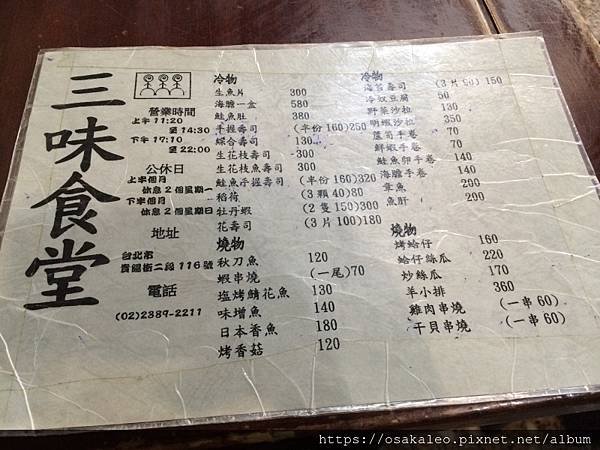 三味食堂
營業時間
上午 11:20
至 14:30
下午 17:10
至 22:00
公休日
上半個月
休息 2 個星期一
下半個月
休息 2 個星期日
地址
台北市
貴陽街二段 116 號
電話
(02)2389-2211
冷物
生魚片 300
海膽一盒 580
鮭魚肚 380
手握壽司 (半份 160)250
綜合壽司 130
生花枝壽司 300
生花枝魚壽司 300
鮭魚手握壽司 (半份 160)320
稻荷 (3 顆 40)80
牡丹蝦 (2 隻 150)300
花壽司 (3 片 100)180
燒物
秋刀魚 120
蝦串燒 (一尾)70
塩烤鯖花魚 130
味增魚 140
日本香魚 180
烤香菇 120
冷物
海苔壽司 (3 片 90) 150
冷奴豆腐 50
野菜沙拉 130
明蝦沙拉 350
蘆筍手卷 70
鮮蝦手卷 70
鮭魚卵手卷 140
海膽手卷 140
章魚 200
魚肝 200
燒物
烤蛤仔 160
蛤仔絲瓜 220
炒絲瓜 170
羊小排 360
雞肉串燒 (一串 60)
干貝串燒 (一串 60)
https://osakaleo.pixnet.net/album